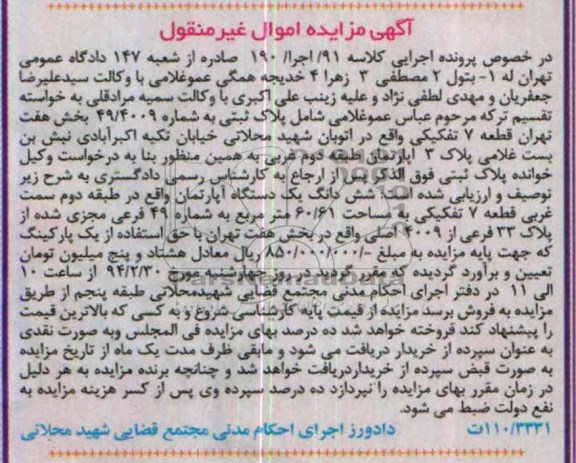 آگهی مزایده اموال غیرمنقول
در خصوص پرونده اجرایی کلاسه ۹۱/ اجرا/ ۱۹۰ صادره از شعبه ۱۴۷ دادگاه عمومی
تهران له ۱- بتول ۲ مصطفی ۳ زهرا ۴ خدیجه همگی عموغلامی با وکالت سیدعلیرضا
جعفریان و مهدی لطفی نژاد و علیه زینب علی اکبری با وکالت سمیه مرادقلی به خواسته
تقسیم ترکه مرحوم عباس عموغلامی شامل پلاک ثبتی به شماره ۴۹/۴۰۰۹ بخش هفت
تهران قطعه ۷ تفکیکی واقع در اتوبان شهید محلاتی خیابان تکیه اکبرآبادی نبش بن
بست غلامی پلاک ۳ آپارتمان طبقه دوم غربی به همین منظور بنا به درخواست وکیل
خوانده پلاک ثبتی فوق الذکر پس از ارجاع به کارشناس رسمی دادگستری به شرح زیر
توصیف و ارزیابی شده است: شش دانگ یک دستگاه آپارتمان واقع در طبقه دوم سمت
غربی قطعه ۷ تفکیکی به مساحت ۶۰/۶۱ متر مربع به شماره ۴۹ فرعی مجزی شده از
پلاک ۳۳ فرعی از ۴۰۰۹ اصلی واقع در بخش هفت تهران با حق استفاده از یک پارکینگ
که جهت پایه مزایده به مبلغ -/۸۵۰/۰۰۰/۰۰۰ ریال معادل هشتاد و پنج میلیون تومان
تعیین و برآورد گردیده که مقرر گردید در روز چهارشنبه مورخ ۹۴/۲/۳۰ از ساعت ۱۰
الی ۱۱ در دفتر اجرای احکام مدنی مجتمع قضایی شهیدمحلاتی طبقه پنجم از طریق
مزایده به فروش برسد مزایده از قیمت پایه کارشناسی شروع و به کسی که بالاترین قیمت
را پیشنهاد کند فروخته خواهد شد ده درصد بهای مزایده فی المجلس وبه صورت نقدی
به عنوان سپرده از خریدار دریافت می شود و مابقی ظرف مدت یک ماه از تاریخ مزایده
به صورت قبض سپرده از خریداردریافت خواهد شد و چنانچه برنده مزایده به هر دلیل
در زمان مقرر بهای مزایده را نپردازد ده درصد سپرده وی پس از کسر هزینه مزایده به
نفع دولت ضبط می شود.
۱۱۰/۳۳۳۱ت دادورز اجرای احکام مدنی مجتمع قضایی شهید محلاتی